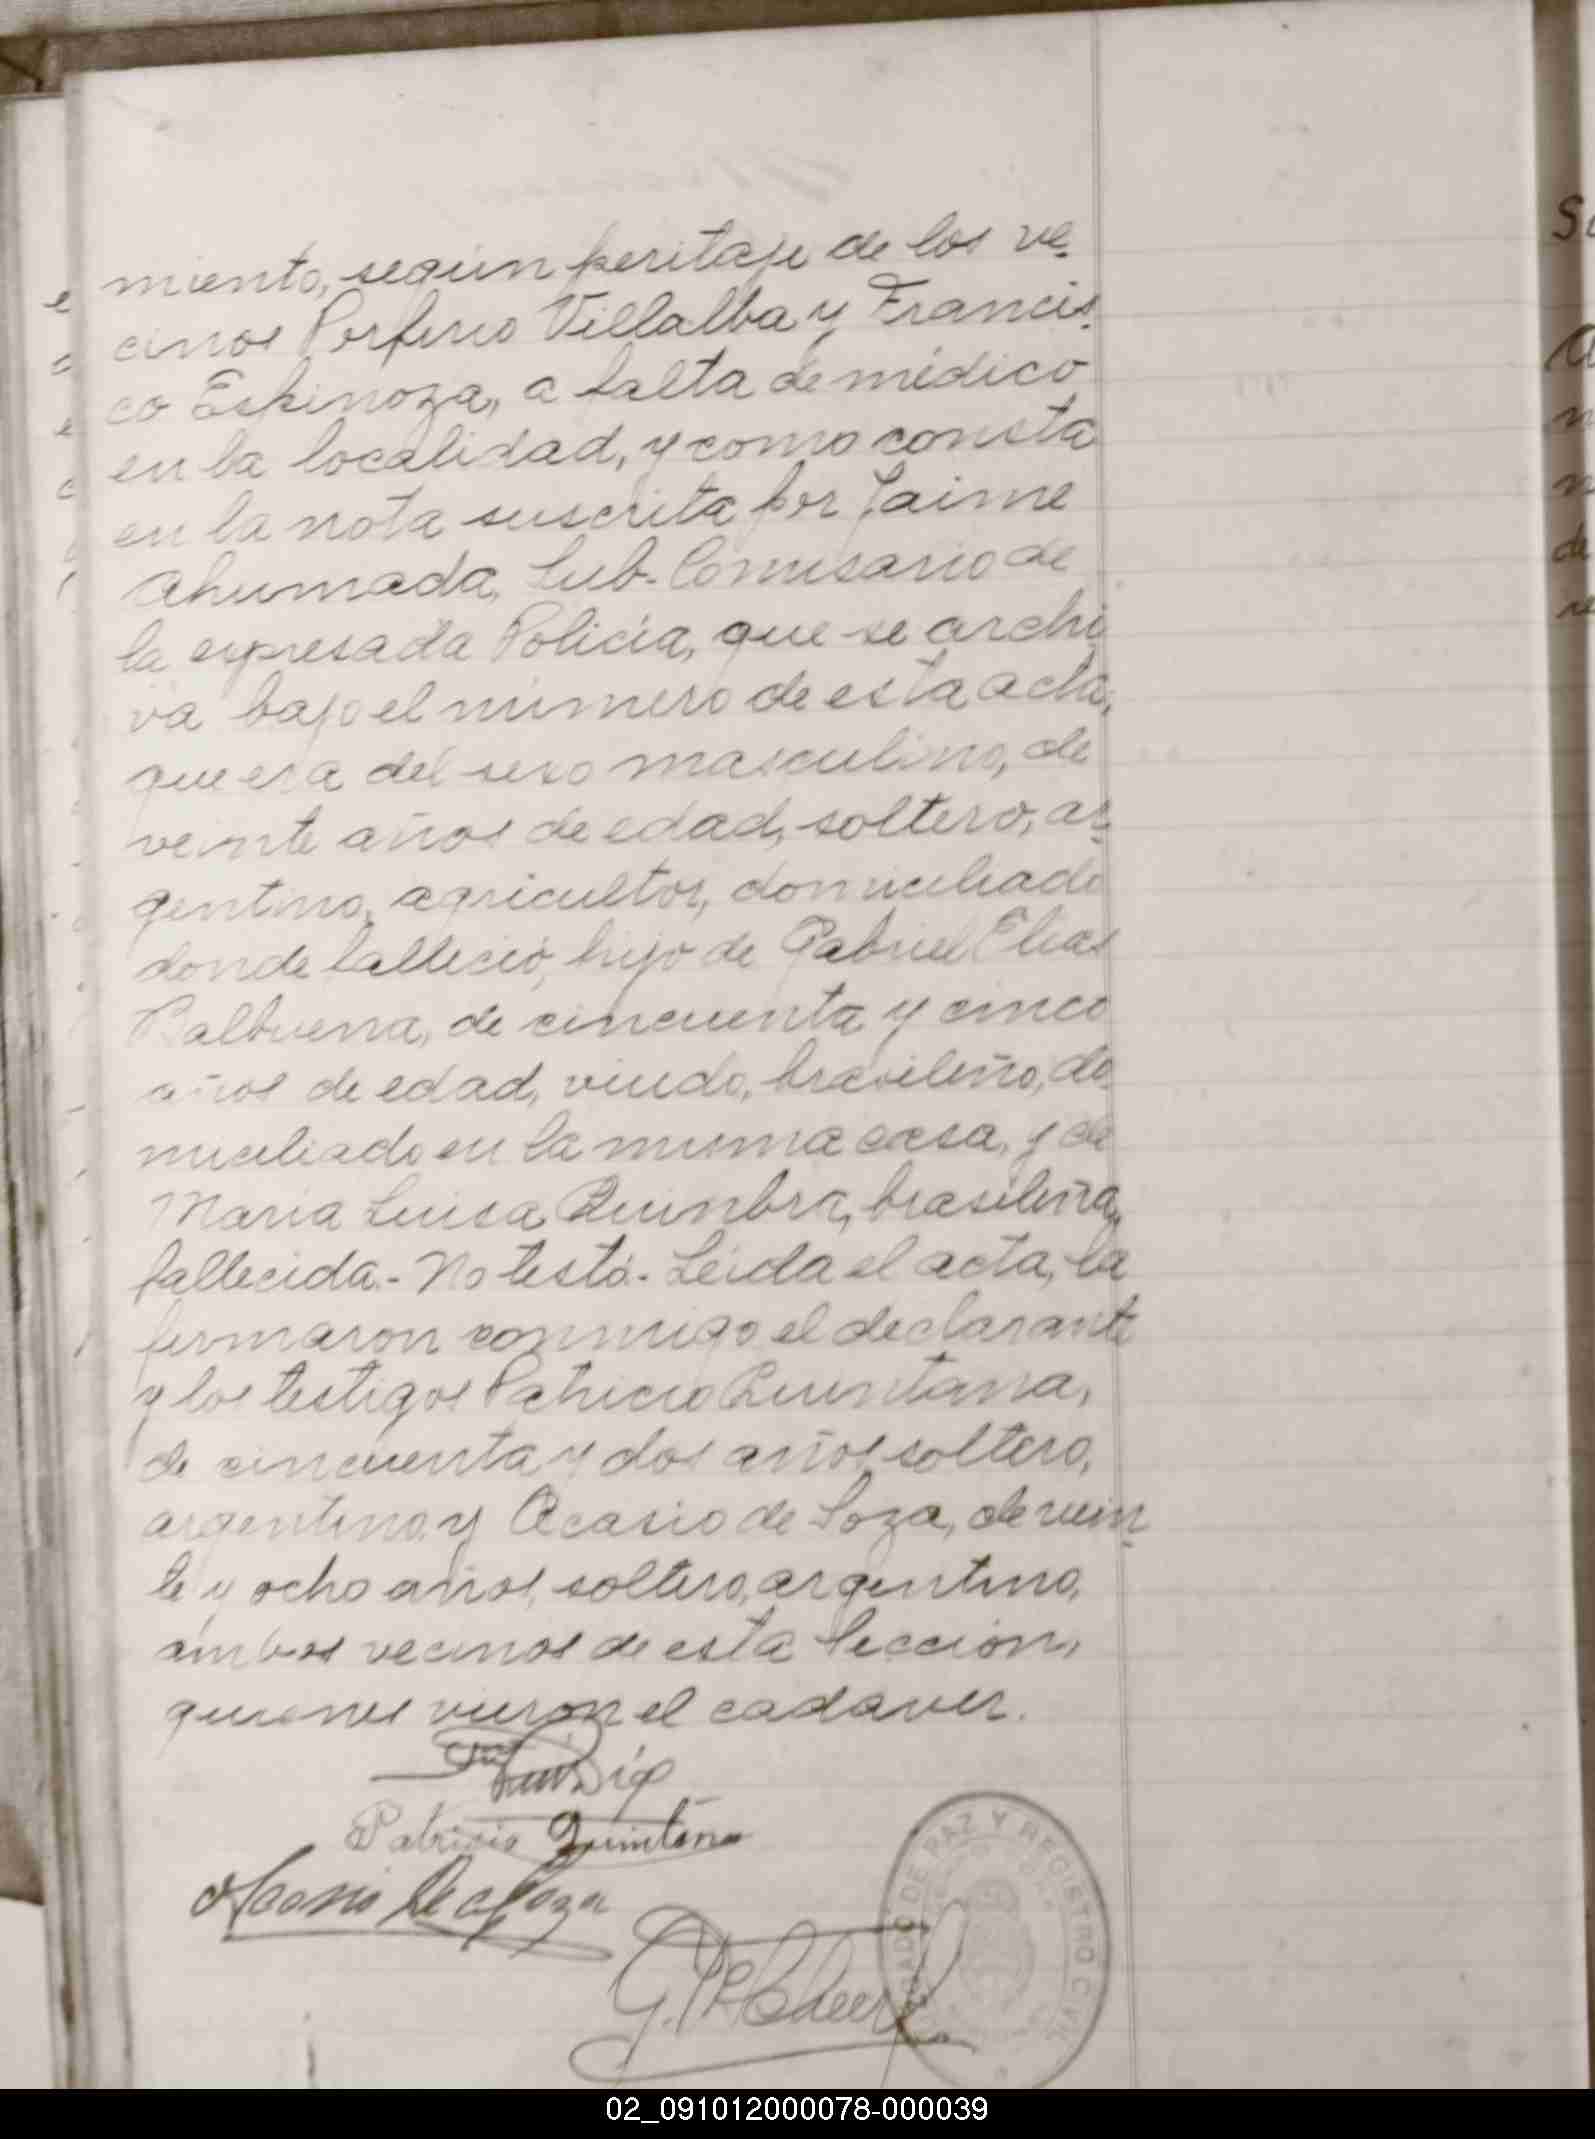 miento, según peritaje de los ve-
cinos Porfirio Villalba y Francis-
co Espinoza, a falta de médico
en la localidad, y como consta
en la nota suscrita por Jaime
Ahumada, Sub-Comisario de
la expresada Policía, que se archi-
va bajo el número de esta acta,
que era del sexo masculino, de
veinte años de edad, soltero, ar-
gentino, agricultor, domiciliado
donde falleció, hijo de Gabriel Elias
Balbuena, de cincuenta y cinco
años de edad, viudo, brasileño, do-
miciliado en la misma casa, y de
Maria Luisa Quinbra, brasileña,
fallecida.- No testó.- Leída el acta, la
firmaron conmigo el declarante
y los testigos Patricio Quintana,
de cincuenta y dos años, soltero,
argentino y Acasio de Soza, de vein-
te y ocho años, soltero, argentino,
ambos vecinos de esta Sección,
quienes vieron el cadaver.
Patricio Quintana
Acasio de Soza
DE PAZ Y REGISTRO CIVIL
02_091012000078-000039